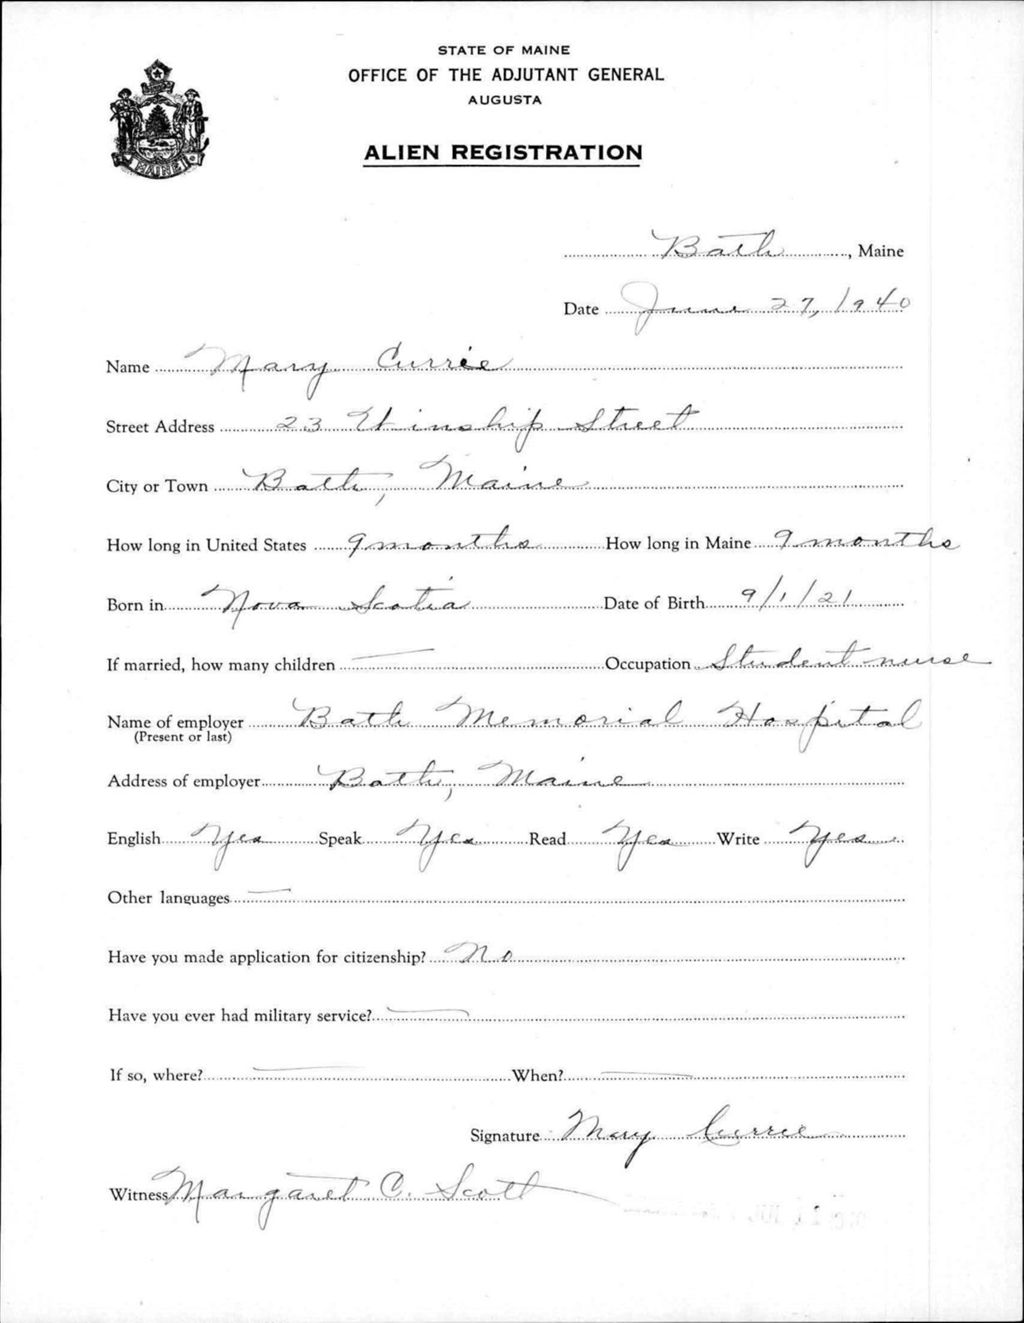 STATE OF MAINE
OFFICE OF THE ADJUTANT GENERAL
AUGUSTA
ALIEN REGISTRATION
MAINE
Bath, Maine
Date June 27, 1940
Name Mary Currie
Street Address 23 Winship Street
City or Town Bath, Maine
How long in United States 9 months How long in Maine 9 months
Born in Nova Scotia Date of Birth 9/1/21
If married, how many children — Occupation Student nurse
Name of employer Bath Memorial Hospital
(Present or last)
Address of employer Bath, Maine
English Yes Speak Yes Read Yes Write Yes
Other languages —
Have you made application for citizenship? No
Have you ever had military service? —
If so, where? — When? —
Signature Mary Currie
Witness Margaret C. Scott